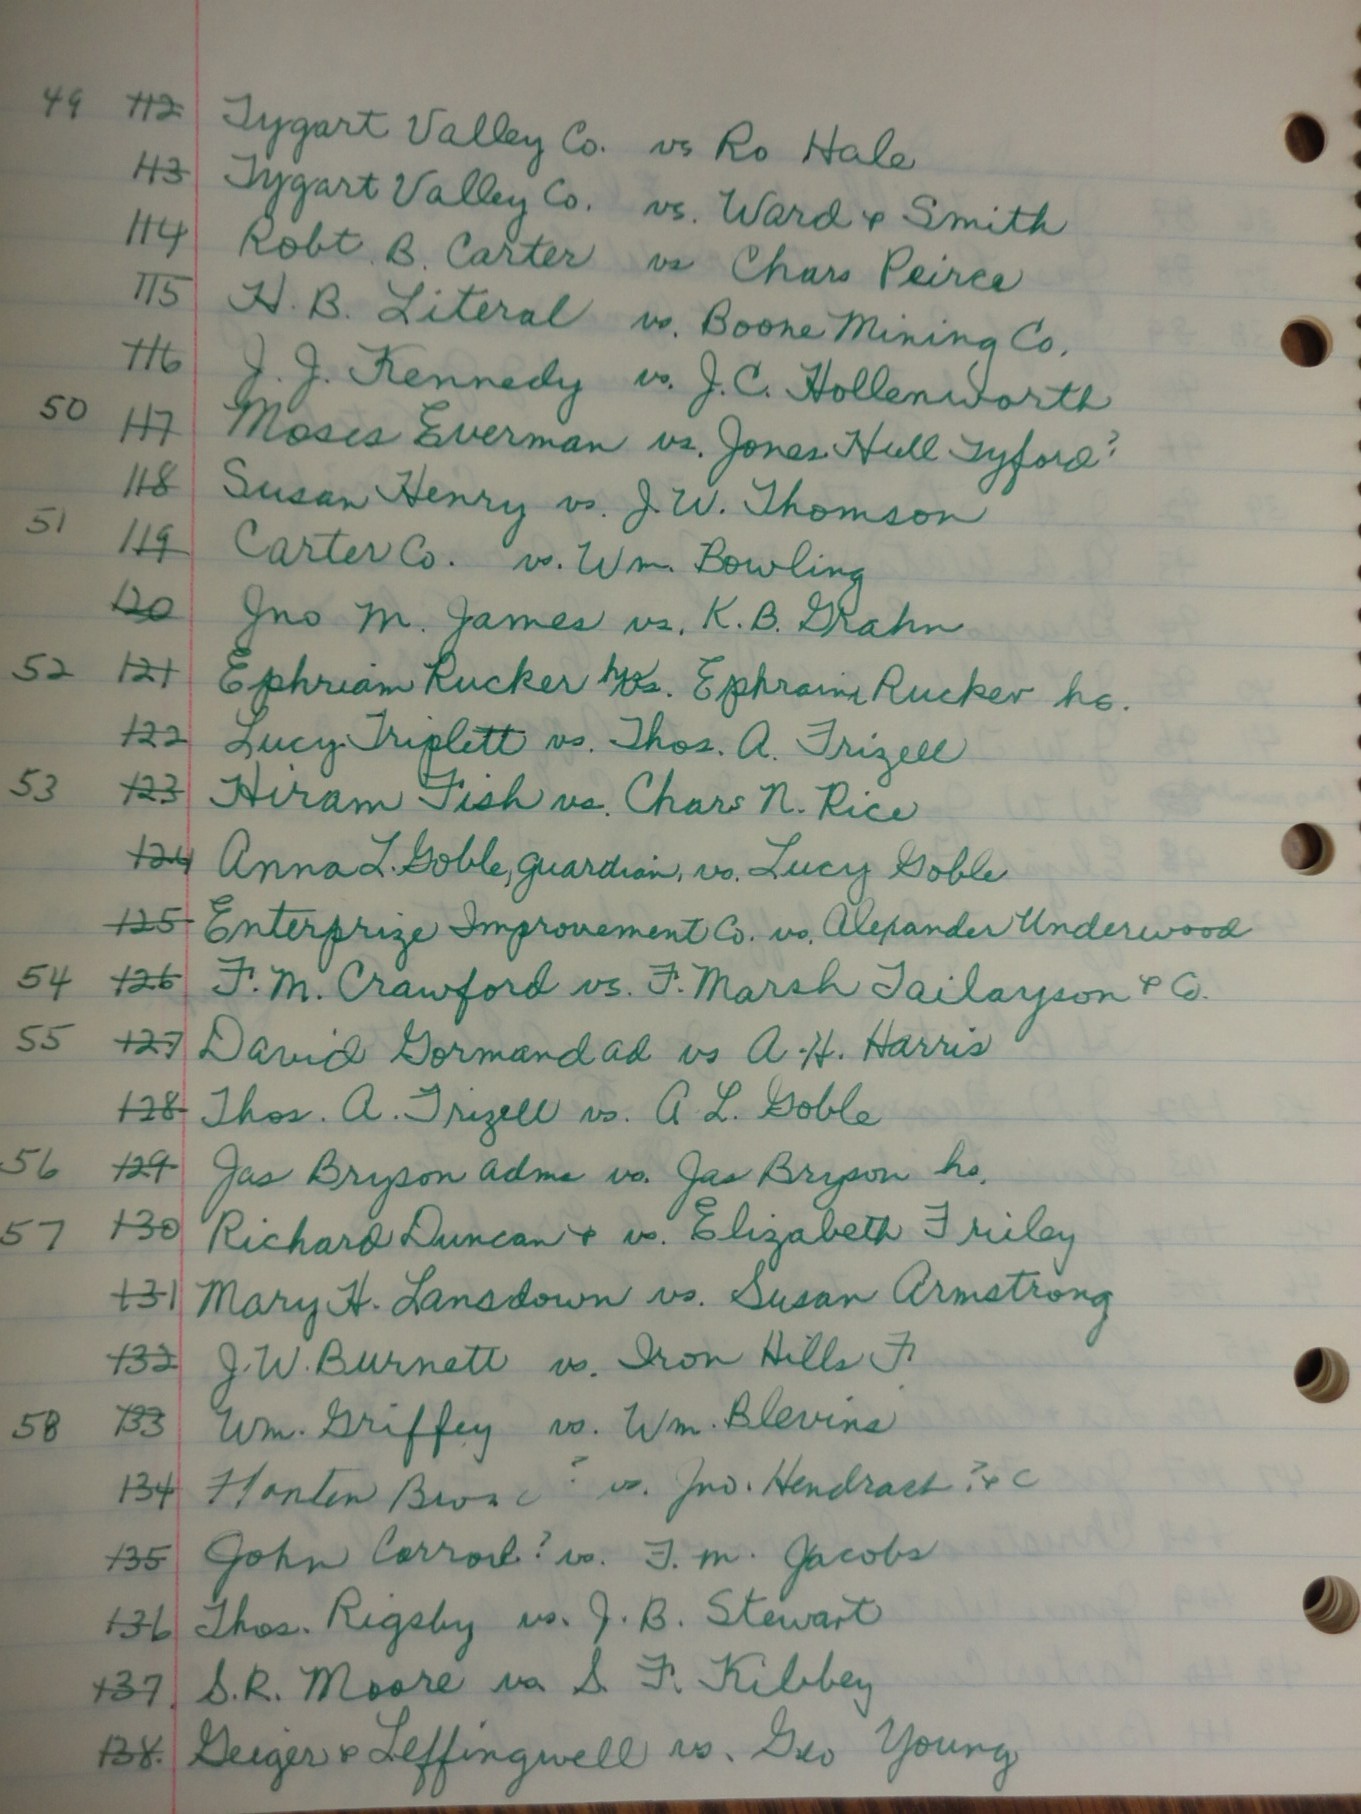 49 112 Tygart Valley Co. vs Ro Hale
113 Tygart Valley Co. vs. Ward & Smith
114 Robt. B. Carter vs Chars Peirce
115 H. B. Literal vs. Boone Mining Co.
116 J. J. Kennedy vs. J. C. Hollenworth
50 117 Moses Everman vs. Jones Hull Tyford?
118 Susan Henry vs. J. W. Thomson
51 119 Carter Co. vs. Wm. Bowling
120 Jno M. James vs. K. B. Grahn
52 121 Ephriam Rucker hrs vs. Ephraim Rucker hs.
122 Lucy Triplett vs. Thos. A. Frizell
53 123 Hiram Fish vs. Chars N. Rice
124 Anna L. Goble, guardian, vs. Lucy Goble
125 Enterprize Improvement Co. vs. Alexander Underwood
54 126 F. M. Crawford vs. F. Marsh Tailayson & Co.
55 127 David Gormand ad vs A. H. Harris
128 Thos. A. Frizell vs. A L. Goble
56 129 Jas Bryson adms vs. Jas Bryson hs.
57 130 Richard Duncan & vs. Elizabeth Friley
131 Mary H. Lansdown vs. Susan Armstrong
132 J. W. Burnett vs. Iron Hills F
58 133 Wm. Griffey vs. Wm. Blevins
134 Hanten Bros c ? vs. Jno. Hendrach ? & c
135 John Carrol? vs. F. M. Jacobs
136 Thos. Rigsby vs. J. B. Stewart
137. S. R. Moore vs S. F. Kibbey
138. Geiger & Leffingwell vs. Geo Young